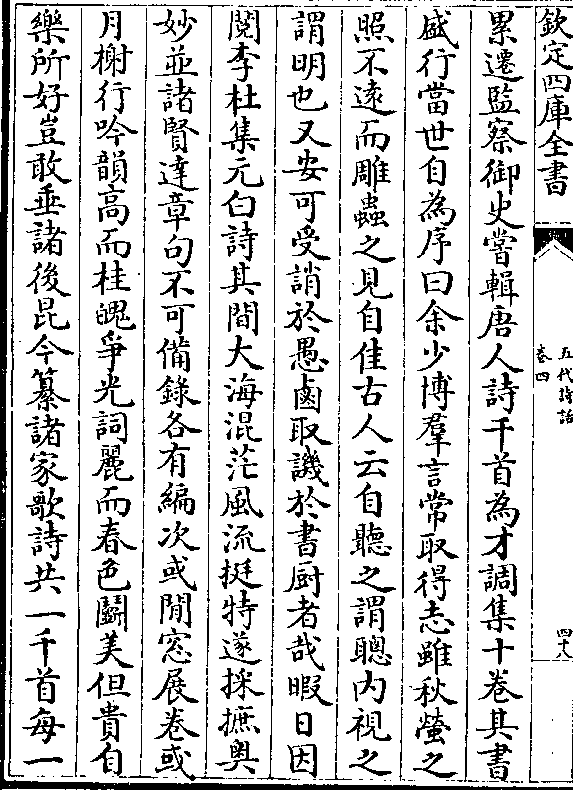 欽定四庫全書
五代詩話
卷四
四十八
累遷監察御史嘗輯唐人詩千首為才調集十卷其書
盛行當世自為序曰余少博羣言常取得志雖秋螢之
照不遠而雕蟲之見自佳古人云自聽之謂聰内視之
謂明也又安可受誚於愚鹵取譏於書厨者哉暇日因
閱李杜集元白詩其間大海混茫風流挺特遂採摭奥
妙並諸賢達章句不可備錄各有編次或閒窓展卷或
月榭行吟韻高而桂魄爭光詞麗而春色鬭美但貴自
樂所好豈敢垂諸後昆今纂諸家歌詩共一千首每一